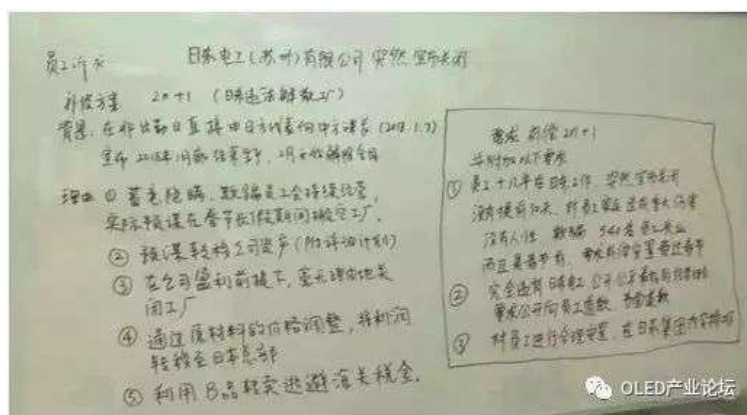 员工诉求
日东电工(苏州)有限公司突然宣布关闭
补偿方案 2n+1 (日东违法解散工厂)
背景:在非出勤日直接由日方代表向中方课长(2018.1.7)
宣布2018年1月底结束生产,2月开始解除合同
理由 ① 蓄意隐瞒、欺骗员工会持续经营,
实际预谋在春节长假期间搬空工厂。
② 预谋转移公司资产(附详细计划)
③ 在公司盈利前提下,毫无理由地关
闭工厂
④ 通过原材料的价格调整,将利润
转移至日本总部
⑤ 利用B品转卖逃避海关税金。
要求 补偿2n+1
并附加以下要求
① 员工十几年在日东工作 突然宣布关闭
没有提前 对员工家庭造成重大伤害
没有人性 欺骗
而且是春节前、
② 完全违背日东电工
要求公开向员工道歉
③ 对员工进行合理安置、在日东集团内
OLED产业论坛